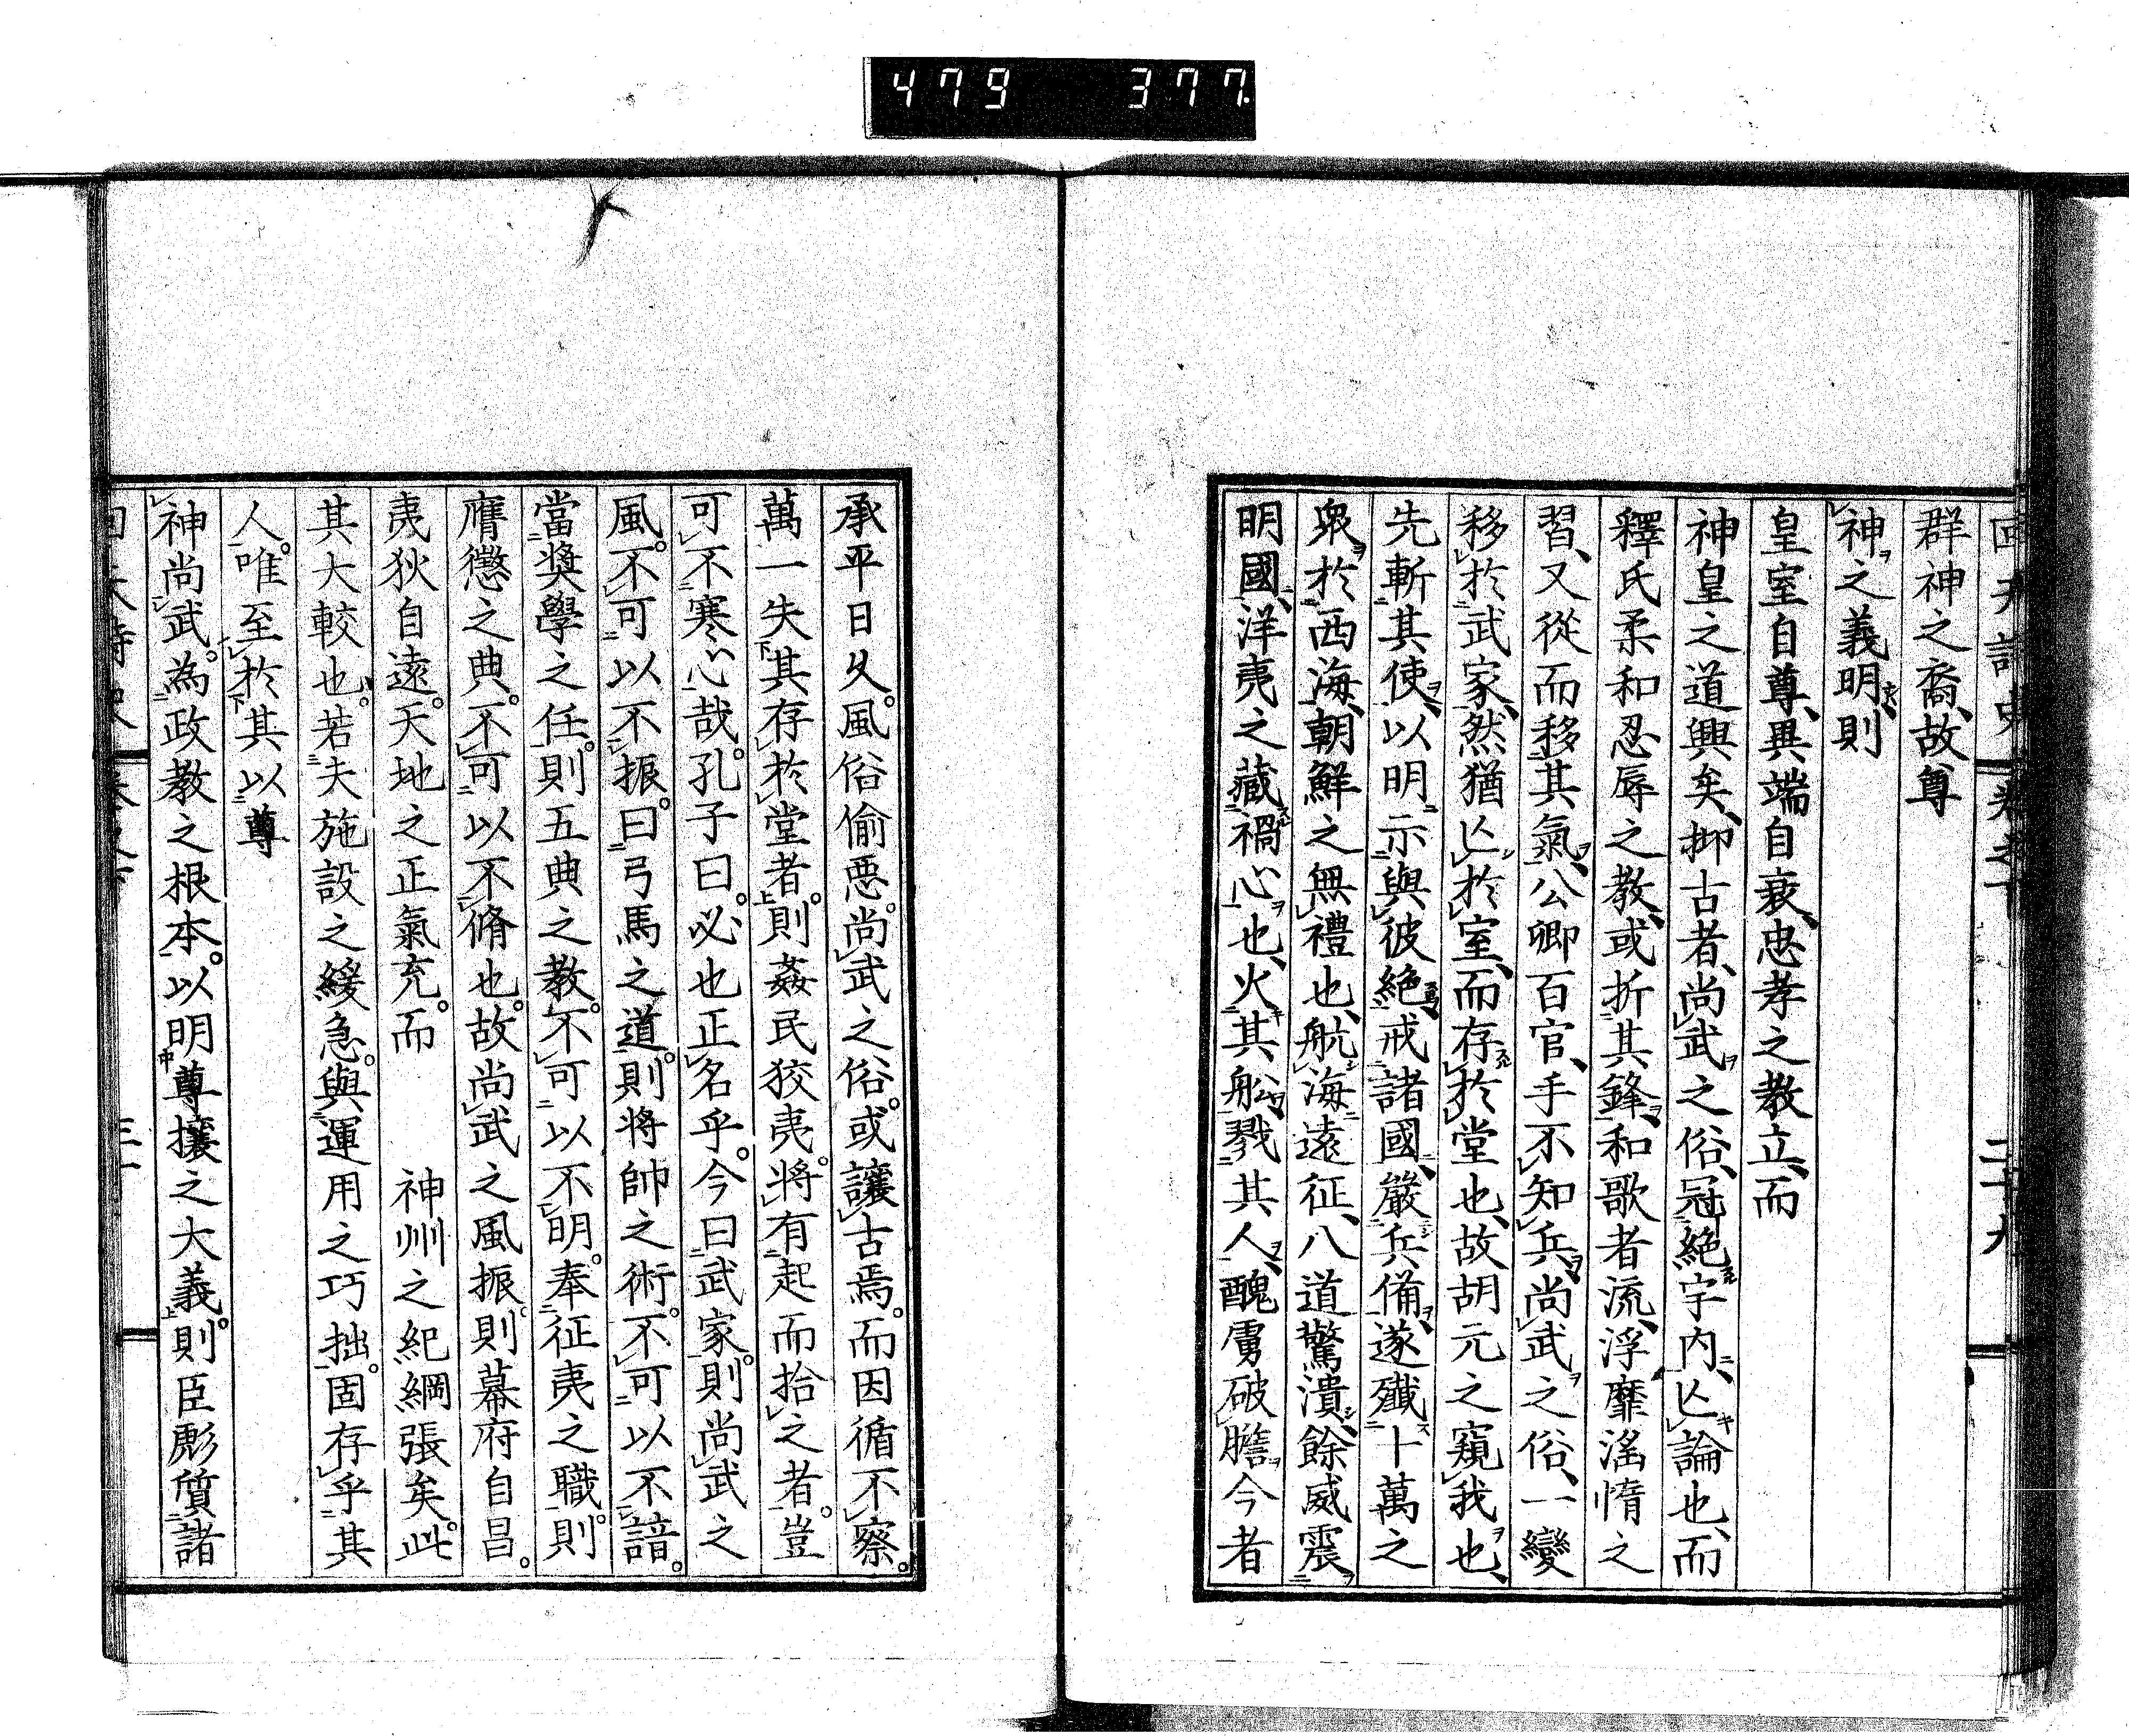 479 377.
群神之裔、故尊
神之義明、則
皇室自尊、異端自衰、忠孝之教立、而
神皇之道興矣、抑古者、尚武之俗、冠絶宇内、亡論也、而
釋氏柔和忍辱之教、或折其鋒、和歌者流、浮靡滛惰之
習、又從而移其氣、公卿百官、手不知兵、尚武之俗、一變
移於武家、然猶亡於室、而存於堂也、故胡元之窺我也、
先斬其使、以明示與彼絶、戒諸國、嚴兵備、遂殲十萬之
衆於西海、朝鮮之無禮也、航海遠征、八道驚潰、餘威震
明國、洋夷之藏禍心也、火其船、戮其人、醜虜破膽、今者
承平日久。風俗偷惡。尚武之俗。或讓古焉。而因循不察。
萬一失其存於堂者。則姦民狡夷。將有起而拾之者。豈
可不寒心哉。孔子曰。必也正名乎。今曰武家。則尚武之
風。不可以不振。曰弓馬之道。則將帥之術。不可以不諳。
當奬學之任。則五典之教。不可以不明。奉征夷之職。則
膺懲之典。不可以不脩也。故尚武之風振則幕府自昌。
夷狄自遠。天地之正氣充。而 神州之紀綱張矣。此
其大較也。若夫施設之緩急。與運用之巧拙。固存乎其
人。唯至於其以尊
神尚武。為政教之根本。以明尊攘之大義。則臣彪質諸